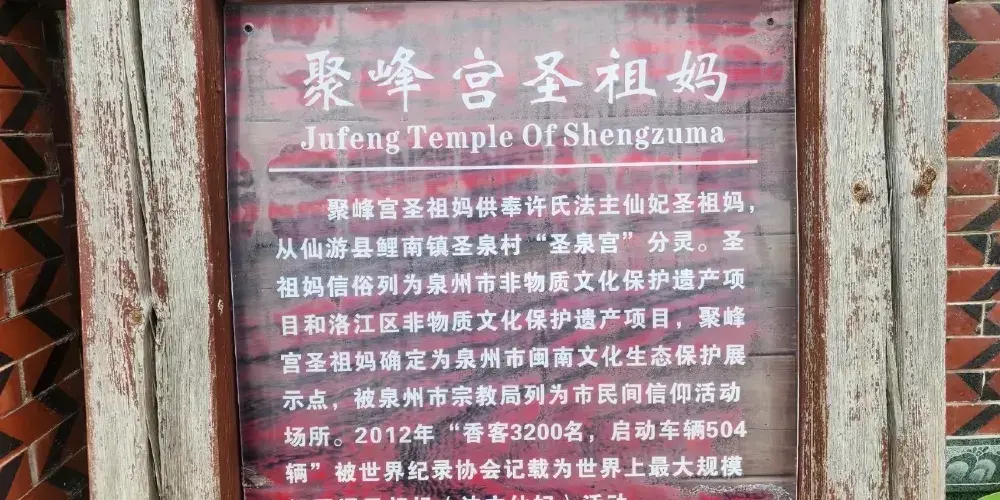 聚峰宫圣祖妈
Jufeng Temple Of Shengzuma
聚峰宫圣祖妈供奉许氏法主仙妃圣祖妈，
从仙游县鲤南镇圣泉村“圣泉宫”分灵。圣
祖妈信俗列为泉州市非物质文化保护遗产项
目和洛江区非物质文化保护遗产项目，聚峰
宫圣祖妈确定为泉州市闽南文化生态保护展
示点，被泉州市宗教局列为市民间信仰活动
场所。2012年“香客3200名，启动车辆504
辆”被世界纪录协会记载为世界上最大规模